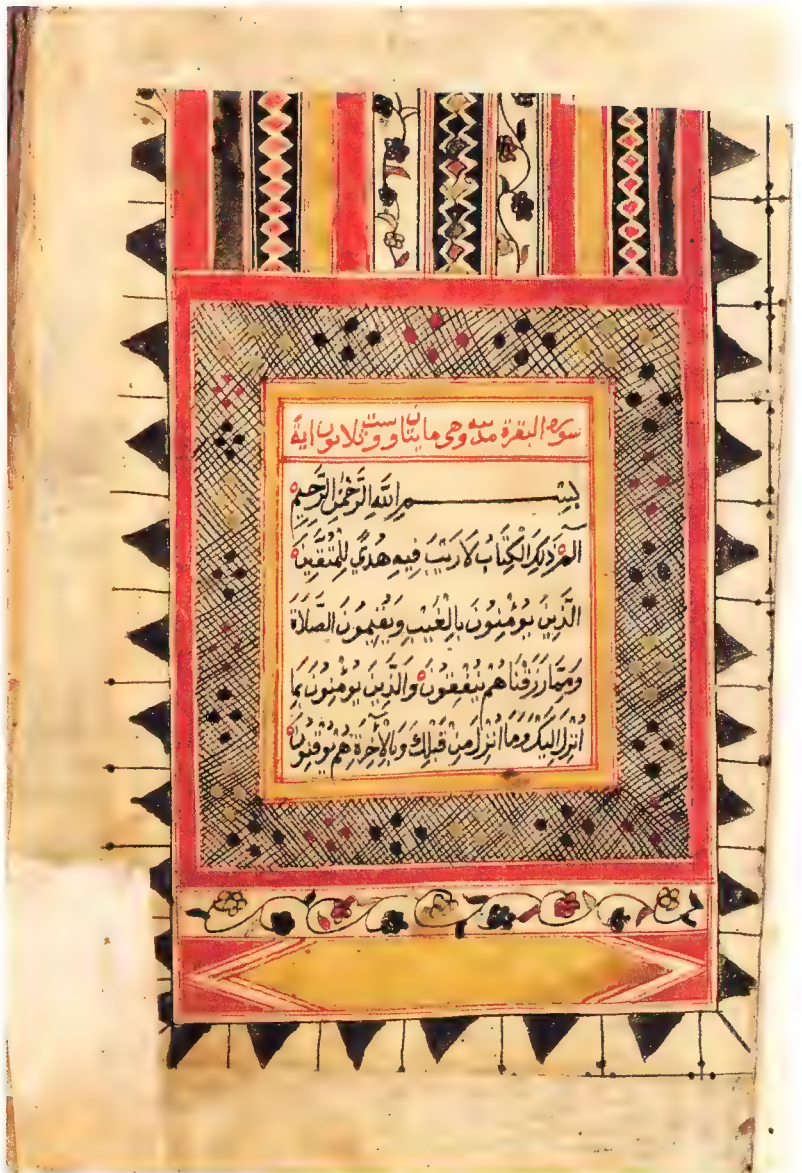 سورة البقرة مدنيه وهى مايتان وست وثلاثون اية
بِسْمِ اللَّهِ الرَّحْمَٰنِ الرَّحِيمِ
الٓمٓ ذَلِكَ الْكِتَابُ لَا رَيْبَ فِيهِ هُدًى لِلْمُتَّقِينَ
الَّذِينَ يُؤْمِنُونَ بِالْغَيْبِ وَيُقِيمُونَ الصَّلَاةَ
وَمِمَّا رَزَقْنَاهُمْ يُنْفِقُونَ وَالَّذِينَ يُؤْمِنُونَ بِمَا
أُنْزِلَ إِلَيْكَ وَمَا أُنْزِلَ مِنْ قَبْلِكَ وَبِالْآخِرَةِ هُمْ يُوقِنُونَ